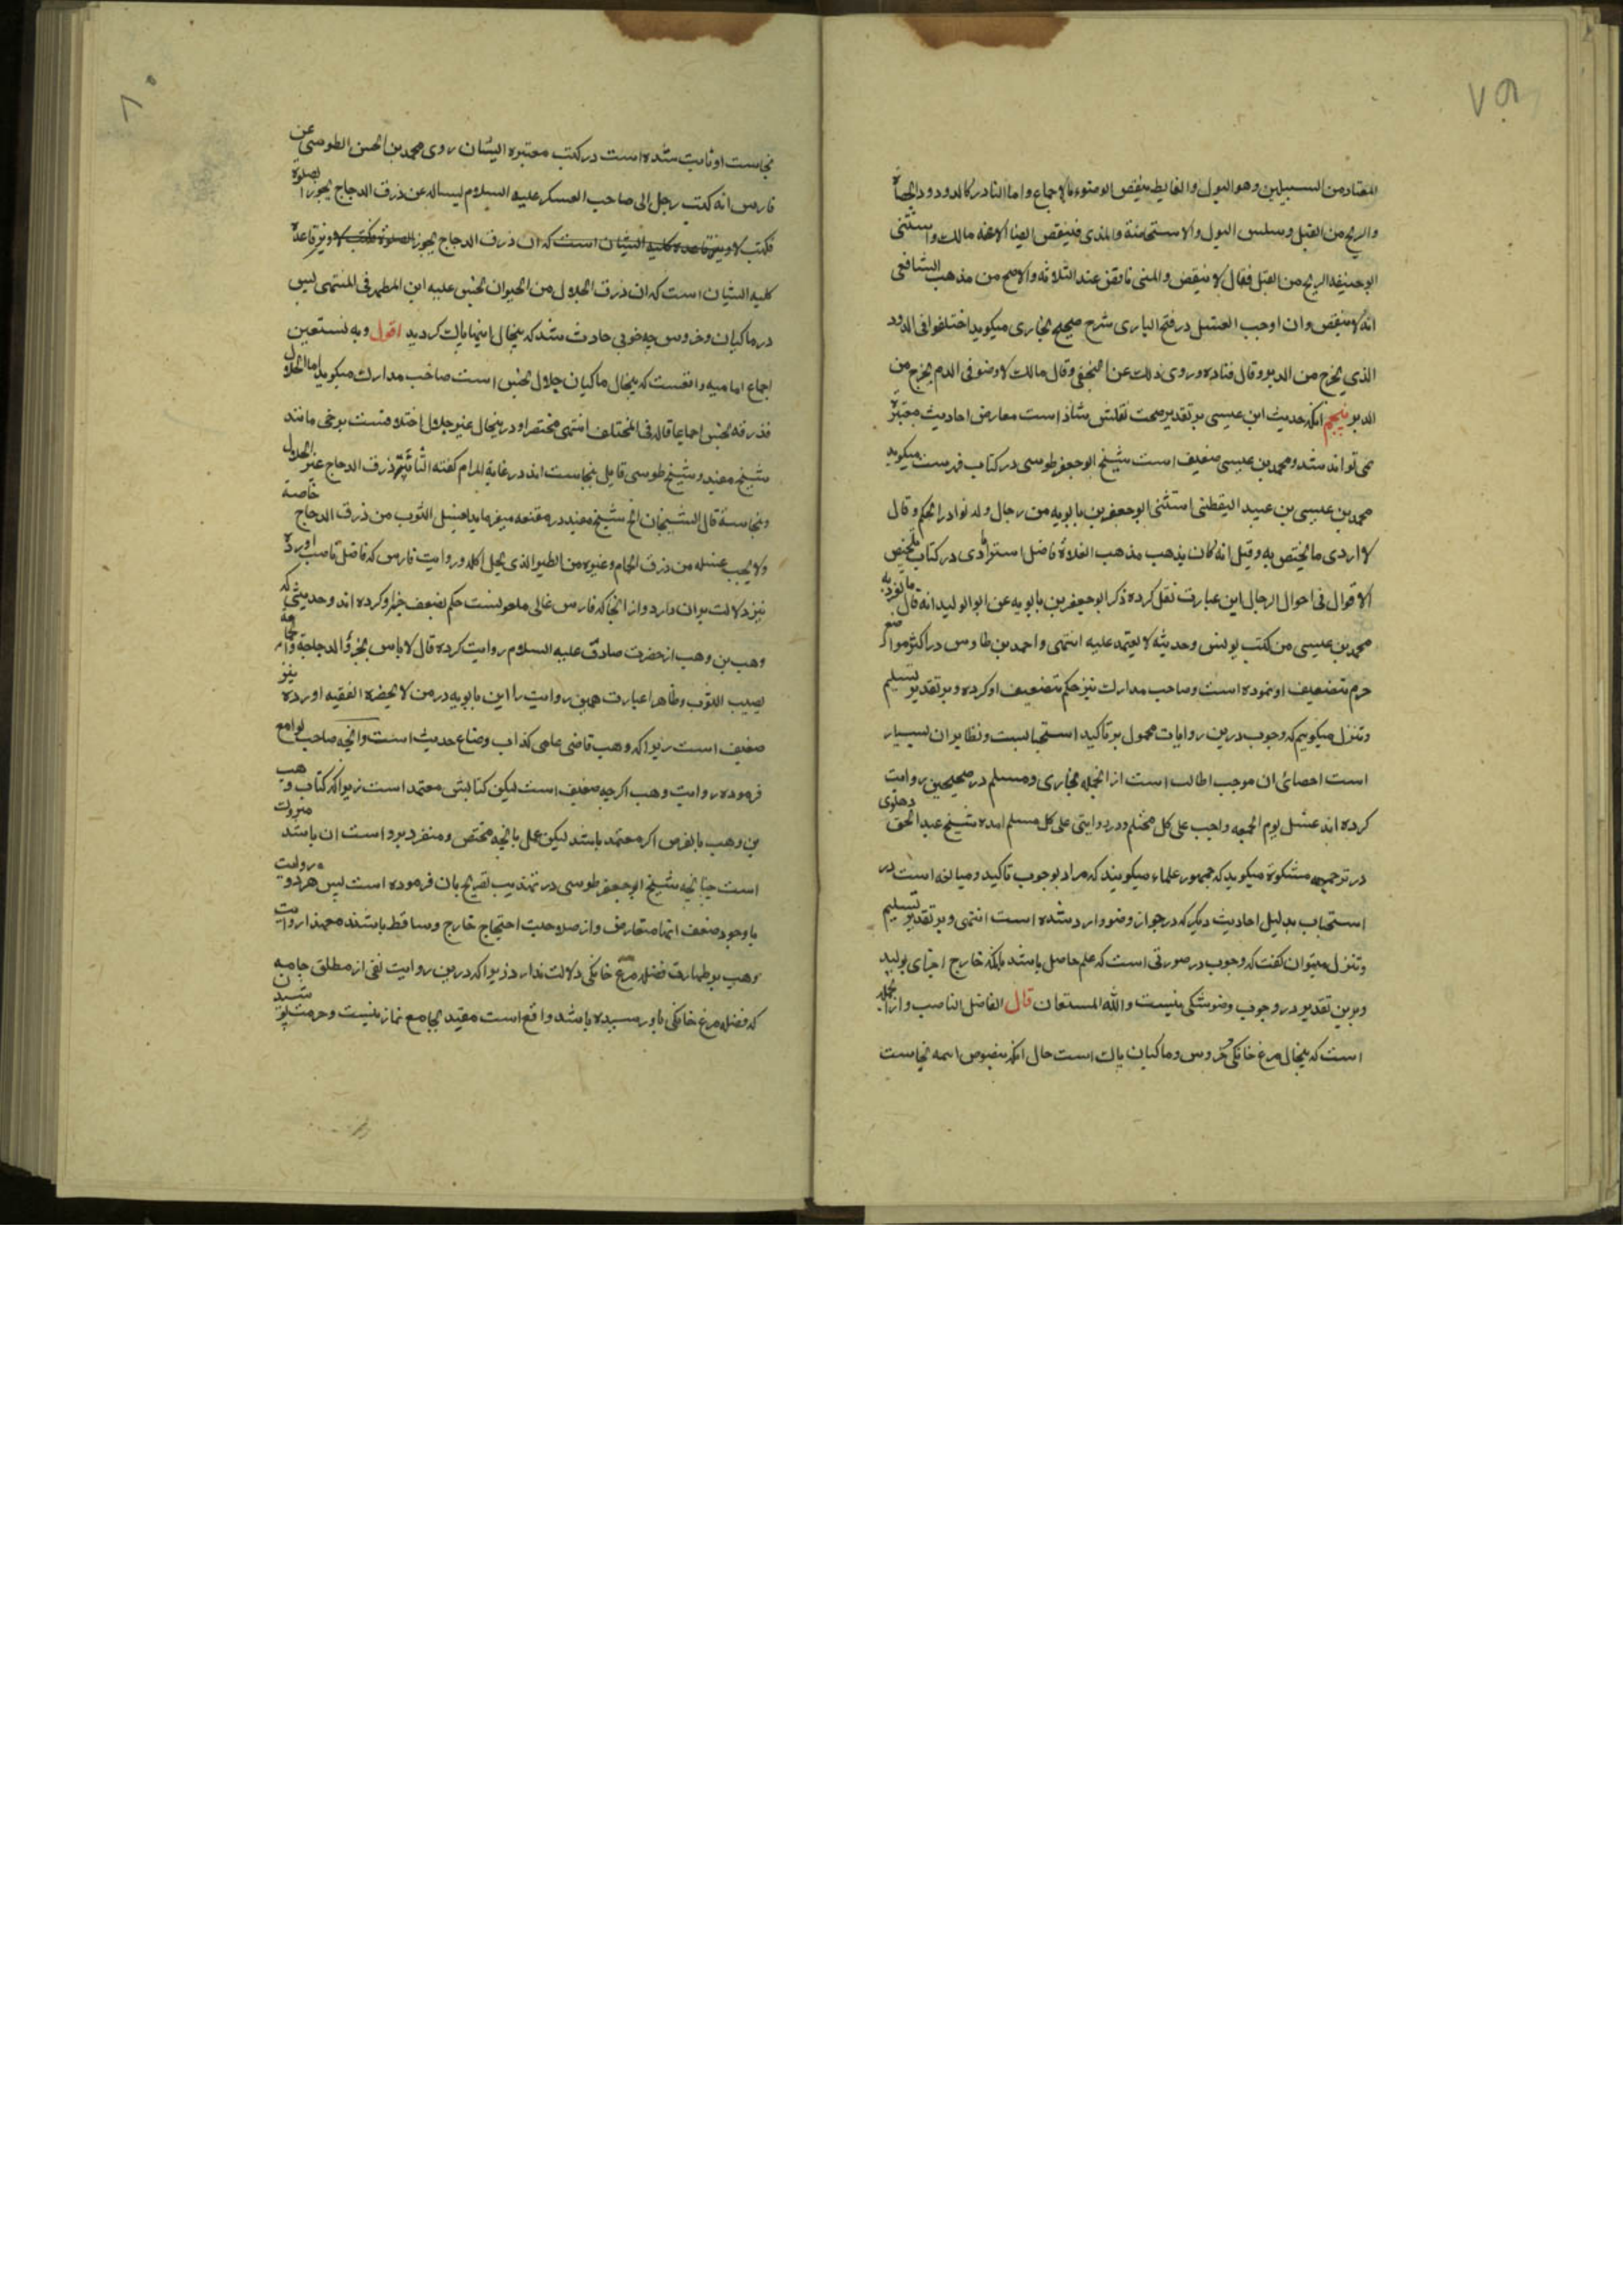 ۷۹
المعتاد من السبيلين وهو البول والغايط ينقض الوضوء بالاجماع واما النادر كالدود والحصاة
والريح من القبل وسلس البول والاستحاضة والمذى فينقض ايضا الا عند مالك واستثنى
ابو حنيفه الريح من القبل فقال لا ينقض والمنى ناقض عند الثلاثه والاصح من مذهب الشافعى
انه لا ينقض وان اوجب الغسل در فتح البارى شرح صحيح بخارى ميكويد اختلفوا فى الدود
الذى يخرج من الدبر وقال قتاده وروى ذلك عن النخعى وقال مالك لا وضو فى الدم يخرج من
الدبر پنجم انكه حديث ابن عيسى بر تقدير صحت نقلش شاذ است معارض احاديث معتبره
نمى تواند شد ومحمد بن عيسى ضعيف است شيخ ابو جعفر طوسى در كتاب فهرست ميكويد
محمد بن عيسى بن عبيد اليقطنى استثنى ابو جعفر بن بابويه من رجال وله نوادر الحكم وقال
لا اروى ما يختص به وقيل انه كان يذهب مذهب الغلاة فاضل استرابادى در كتاب تلخيص
الاقوال فى احوال الرجال اين عبارت نقل كرده ذكر ابو جعفر بن بابويه عن ابو الوليد انه قال ما تفرد به
محمد بن عيسى من كتب يونس وحديثه لا يعتمد عليه انتهى واحمد بن طاوس در اكثر مواضع
جزم بتضعيف او نموده است وصاحب مدارك نيز حكم بتضعيف او كرده وبر تقدير تسليم
وتنزل ميكوييم كه وجوب درين روايات محمول بر تاكيد استحبابست ونظاير ان بسيار
است احصاى ان موجب اطالت است از انجمله بخارى ومسلم در صحيحين روايت
كرده اند غسل يوم الجمعه واجب على كل محتلم ودر روايتى على كل مسلم امده شيخ عبد الحق دهلوى
در ترجمه مشكوة ميكويد كه جمهور علماء ميكويند كه مراد بوجوب تاكيد ومبالغه است در
استحباب بدليل احاديث ديكر كه در جواز وضو وارد شده است انتهى وبر تقدير تسليم
وتنزل ميتوان كفت كه وجوب در صورتى است كه علم حاصل باشد بانكه خارج اجزاى بوليه
وبرين تقدير در وجوب وضو شكى نيست والله المستعان قال الفاضل الناصب وازانجمله
است كه پيخال مرغ خانكى خروس وماكيان پاك است حال انكه بنصوص ائمه نجاست
۸۰
نجاست او ثابت شده است در كتب معتبره ايشان روى محمد بن الحسن الطوسى عن
فارس انه كتب رجل الى صاحب العسكر عليه السلام يساله عن ذرق الدجاج يجوز الصلوة
فكتب لا ونيز قاعده كليه ايشان است كه ان ذرق الدجاج يجوز الصلوة فكتب لا ونيز قاعدة
كليه ايشان است كه ان ذرق الجلال من الحيوان نجس عليه ابن المطهر فى المنتهى پس
در ماكيان وخروس چه خوبى حادث شد كه پيخال اينها پاك كرديد اقول وبه نستعين
اجماع اماميه واقعست كه پيخال ماكيان جلال نجس است صاحب مدارك ميكويد اما الجلال
فذرقه نجس اجماعا قاله فى المختلف انتهى مختصرا ودر پيخال غير جلال اختلافست برخى مانند
شيخ مفيد وشيخ طوسى قايل بنجاست اند در غاية المرام كفته الثانية ذرق الدجاج غير الجلال
ونجاسة قال الشيخان الخ شيخ مفيد در مقنعه ميفرمايد يغسل الثوب من ذرق الدجاج خاصة
ولا يجب غسله من ذرق الحمام وغيره من الطير الذى يحل اكله وروايت فارس كه فاضل ناصب اورده
نيز دلالت بران دارد وازانجا كه فارس غالى ملعونست حكم بضعف خبر او كرده اند وحديثى كه
وهب بن وهب از حضرت صادق عليه السلام روايت كرده قال لا باس بخرؤ الدجاجة والحمامه
يصيب الثوب وظاهر اعبارت همين روايت را ابن بابويه در من لا يحضره الفقيه اورده نيز
ضعيف است زيرا كه وهب قاضى عامى كذاب وضاع حديث است وانچه صاحب لوامع
فرموده روايت وهب اكرچه ضعيف است ليكن كتابش معتمد است زيرا كه كتاب وهب
بن وهب بالفرض اكر معتمد باشد ليكن عمل بانچه مختص ومنفرد برواست ان باشد متروك
است چنانچه شيخ ابو جعفر طوسى در تهذيب تصريح بان فرموده است پس هر دو روايت
با وجود ضعف انها متعارض واز صلاحيت احتجاج خارج وساقط باشند معهذا روايت
وهب بر طهارت فضله مرغ خانكى دلالت ندارد زيرا كه درين روايت نفى از مطلق جامه
كه فضله مرغ خانكى باو رسيده باشد واقع است مقيد بجامع نماز نيست وحرمت پوشيدن